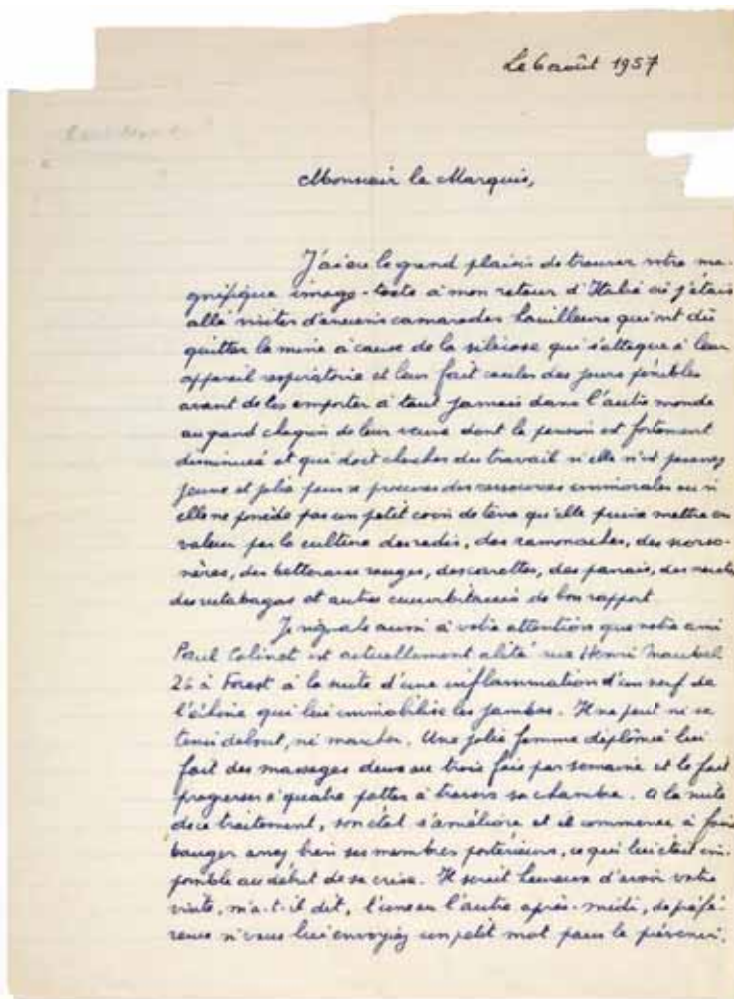 Le 6 août 1957
Monsieur le Marquis,
J'ai eu le grand plaisir de trouver votre ma-
gnifique image-texte à mon retour d'Italie où j'étais
allé visiter d'anciens camarades houilleurs qui ont dû
quitter la mine à cause de la silicose qui s'attaque à leur
appareil respiratoire et leur fait couler des jours pénibles
avant de les emporter à tout jamais dans l'autre monde
au grand chagrin de leur veuve dont la pension est fortement
diminuée et qui doit chercher du travail si elle n'est pas assez
jeune et jolie pour se procurer des ressources immorales ou si
elle ne possède pas un petit coin de terre qu'elle puisse mettre en
valeur par la culture des radis, des ramonaches, des scorso-
nères, des betteraves rouges, des carottes, des panais, des navets,
des rutabagas et autres cucurbitacées de bon rapport
Je signale aussi à votre attention que notre ami
Paul Colinet est actuellement alité rue Henri Maubel
26 à Forest à la suite d'une inflammation d'un nerf de
l'échine qui lui immobilise les jambes. Il ne peut ni se
tenir debout, ni marcher. Une jolie femme diplômée lui
fait des massages deux ou trois fois par semaine et le fait
progresser à quatre pattes à travers sa chambre. A la suite
de ce traitement, son état s'améliore et il commence à faire
bouger assez bien ses membres postérieurs, ce qui lui était im-
possible au début de sa crise. Il serait heureux d'avoir votre
visite, m'a-t-il dit, l'une ou l'autre après-midi, de préfé-
rence si vous lui envoyiez un petit mot pour le prévenir.